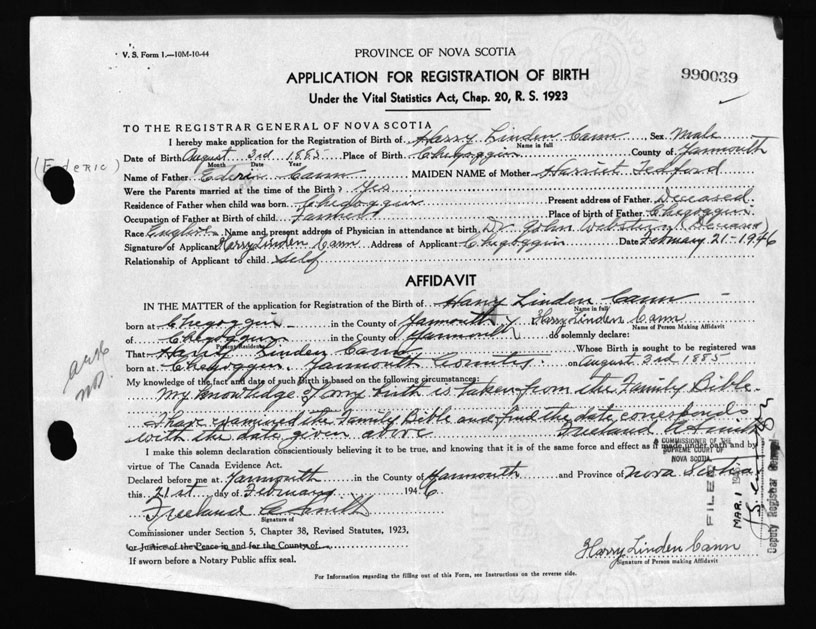 V. S. Form 1.—10M-10-44
PROVINCE OF NOVA SCOTIA
APPLICATION FOR REGISTRATION OF BIRTH
990039
Under the Vital Statistics Act, Chap. 20, R. S. 1923
TO THE REGISTRAR GENERAL OF NOVA SCOTIA
I hereby make application for the Registration of Birth of Harry Linden Cann Sex Male
Name in full
Date of Birth August 3rd 1885 Place of Birth Chegoggin County of Yarmouth
Month Date Year
(Ederic)
Name of Father Ederic Cann MAIDEN NAME of Mother Harriet Tedford
Were the Parents married at the time of the Birth? Yes
Residence of Father when child was born Chegoggin Present address of Father Deceased
Occupation of Father at Birth of child Farmer Place of birth of Father Chegoggin
Race English Name and present address of Physician in attendance at birth Dr. John Webster (Deceased)
Signature of Applicant Harry Linden Cann Address of Applicant Chegoggin Date February 21-1946
Relationship of Applicant to child Self
AFFIDAVIT
IN THE MATTER of the application for Registration of the Birth of Harry Linden Cann
Name in full
born at Chegoggin in the County of Yarmouth Harry Linden Cann
Name of Person Making Affidavit
of Chegoggin in the County of Yarmouth do solemnly declare:
Present Residence
That Harry Linden Cann Whose Birth is sought to be registered was
born at Chegoggin, Yarmouth County on August 3rd 1885
My knowledge of the fact and date of such Birth is based on the following circumstances:
My knowledge of my birth is taken from the Family Bible.
I have examined the Family Bible and find the date corresponds
with the date given above Freeland C Smith
A COMMISSIONER OF THE
SUPREME COURT OF
NOVA SCOTIA
I make this solemn declaration conscientiously believing it to be true, and knowing that it is of the same force and effect as if made under oath and by
virtue of The Canada Evidence Act.
Declared before me at Yarmouth in the County of Yarmouth and Province of Nova Scotia
this 21st day of February 1946
Freeland C Smith
Signature of
Commissioner under Section 5, Chapter 38, Revised Statutes, 1923,
or Justice of the Peace in and for the County of
If sworn before a Notary Public affix seal.
Harry Linden Cann
Signature of Person making Affidavit
FILED
MAR. 1
Deputy Registrar General
For Information regarding the filling out of this Form, see Instructions on the reverse side.